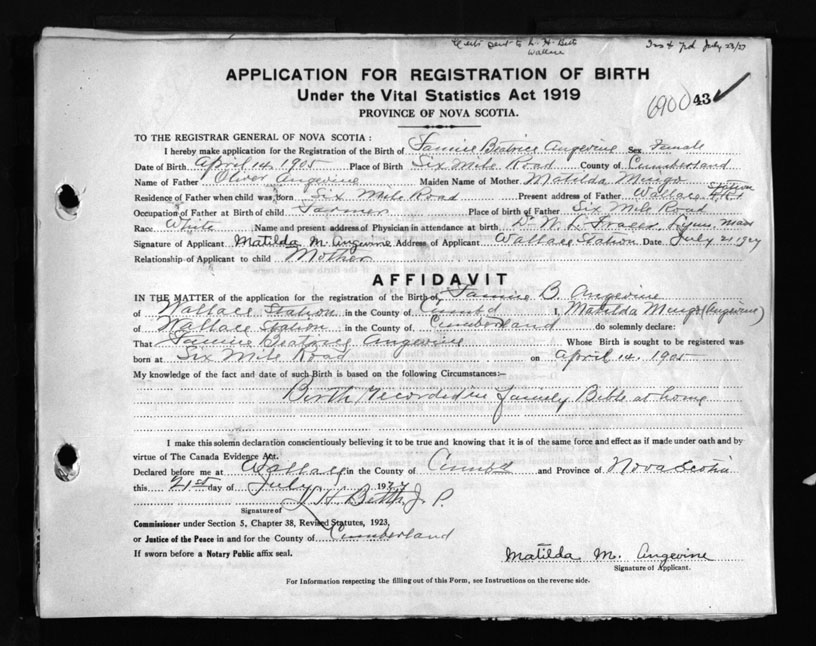 Certi sent to L. H. Betts
Wallace
Ins + pd July 23/27
APPLICATION FOR REGISTRATION OF BIRTH
Under the Vital Statistics Act 1919
PROVINCE OF NOVA SCOTIA.
6900 43
TO THE REGISTRAR GENERAL OF NOVA SCOTIA :
I hereby make application for the Registration of the Birth of Fannie Beatrice Angevine Sex Female
Date of Birth April 14, 1905 Place of Birth Six Mile Road County of Cumberland
Name of Father Oliver Angevine Maiden Name of Mother Matilda Mingo
Residence of Father when child was born Six Mile Road Present address of Father Wallace Station
Occupation of Father at Birth of child Farmer Place of birth of Father Six Mile Road
Race White Name and present address of Physician in attendance at birth Dr W. Fraser, Lynn, Mass
Signature of Applicant Matilda M. Angevine Address of Applicant Wallace Station Date July 21 1927
Relationship of Applicant to child Mother
AFFIDAVIT
IN THE MATTER of the application for the registration of the Birth of Fannie B. Angevine
of Wallace Station in the County of Cumb'd I, Matilda Mingo (Angevine)
of Wallace Station in the County of Cumberland do solemnly declare:
That Fannie Beatrice Angevine Whose Birth is sought to be registered was
born at Six Mile Road on April 14, 1905
My knowledge of the fact and date of such Birth is based on the following Circumstances:—
Birth recorded in family Bible at home
I make this solemn declaration conscientiously believing it to be true and knowing that it is of the same force and effect as if made under oath and by
virtue of The Canada Evidence Act.
Declared before me at Wallace in the County of Cumb'd and Province of Nova Scotia
this 21st day of July 1927
Signature of L H Betts J. P.
Commissioner under Section 5, Chapter 38, Revised Statutes, 1923,
or Justice of the Peace in and for the County of Cumberland
If sworn before a Notary Public affix seal.
Matilda M. Angevine
Signature of Applicant.
For Information respecting the filling out of this Form, see Instructions on the reverse side.